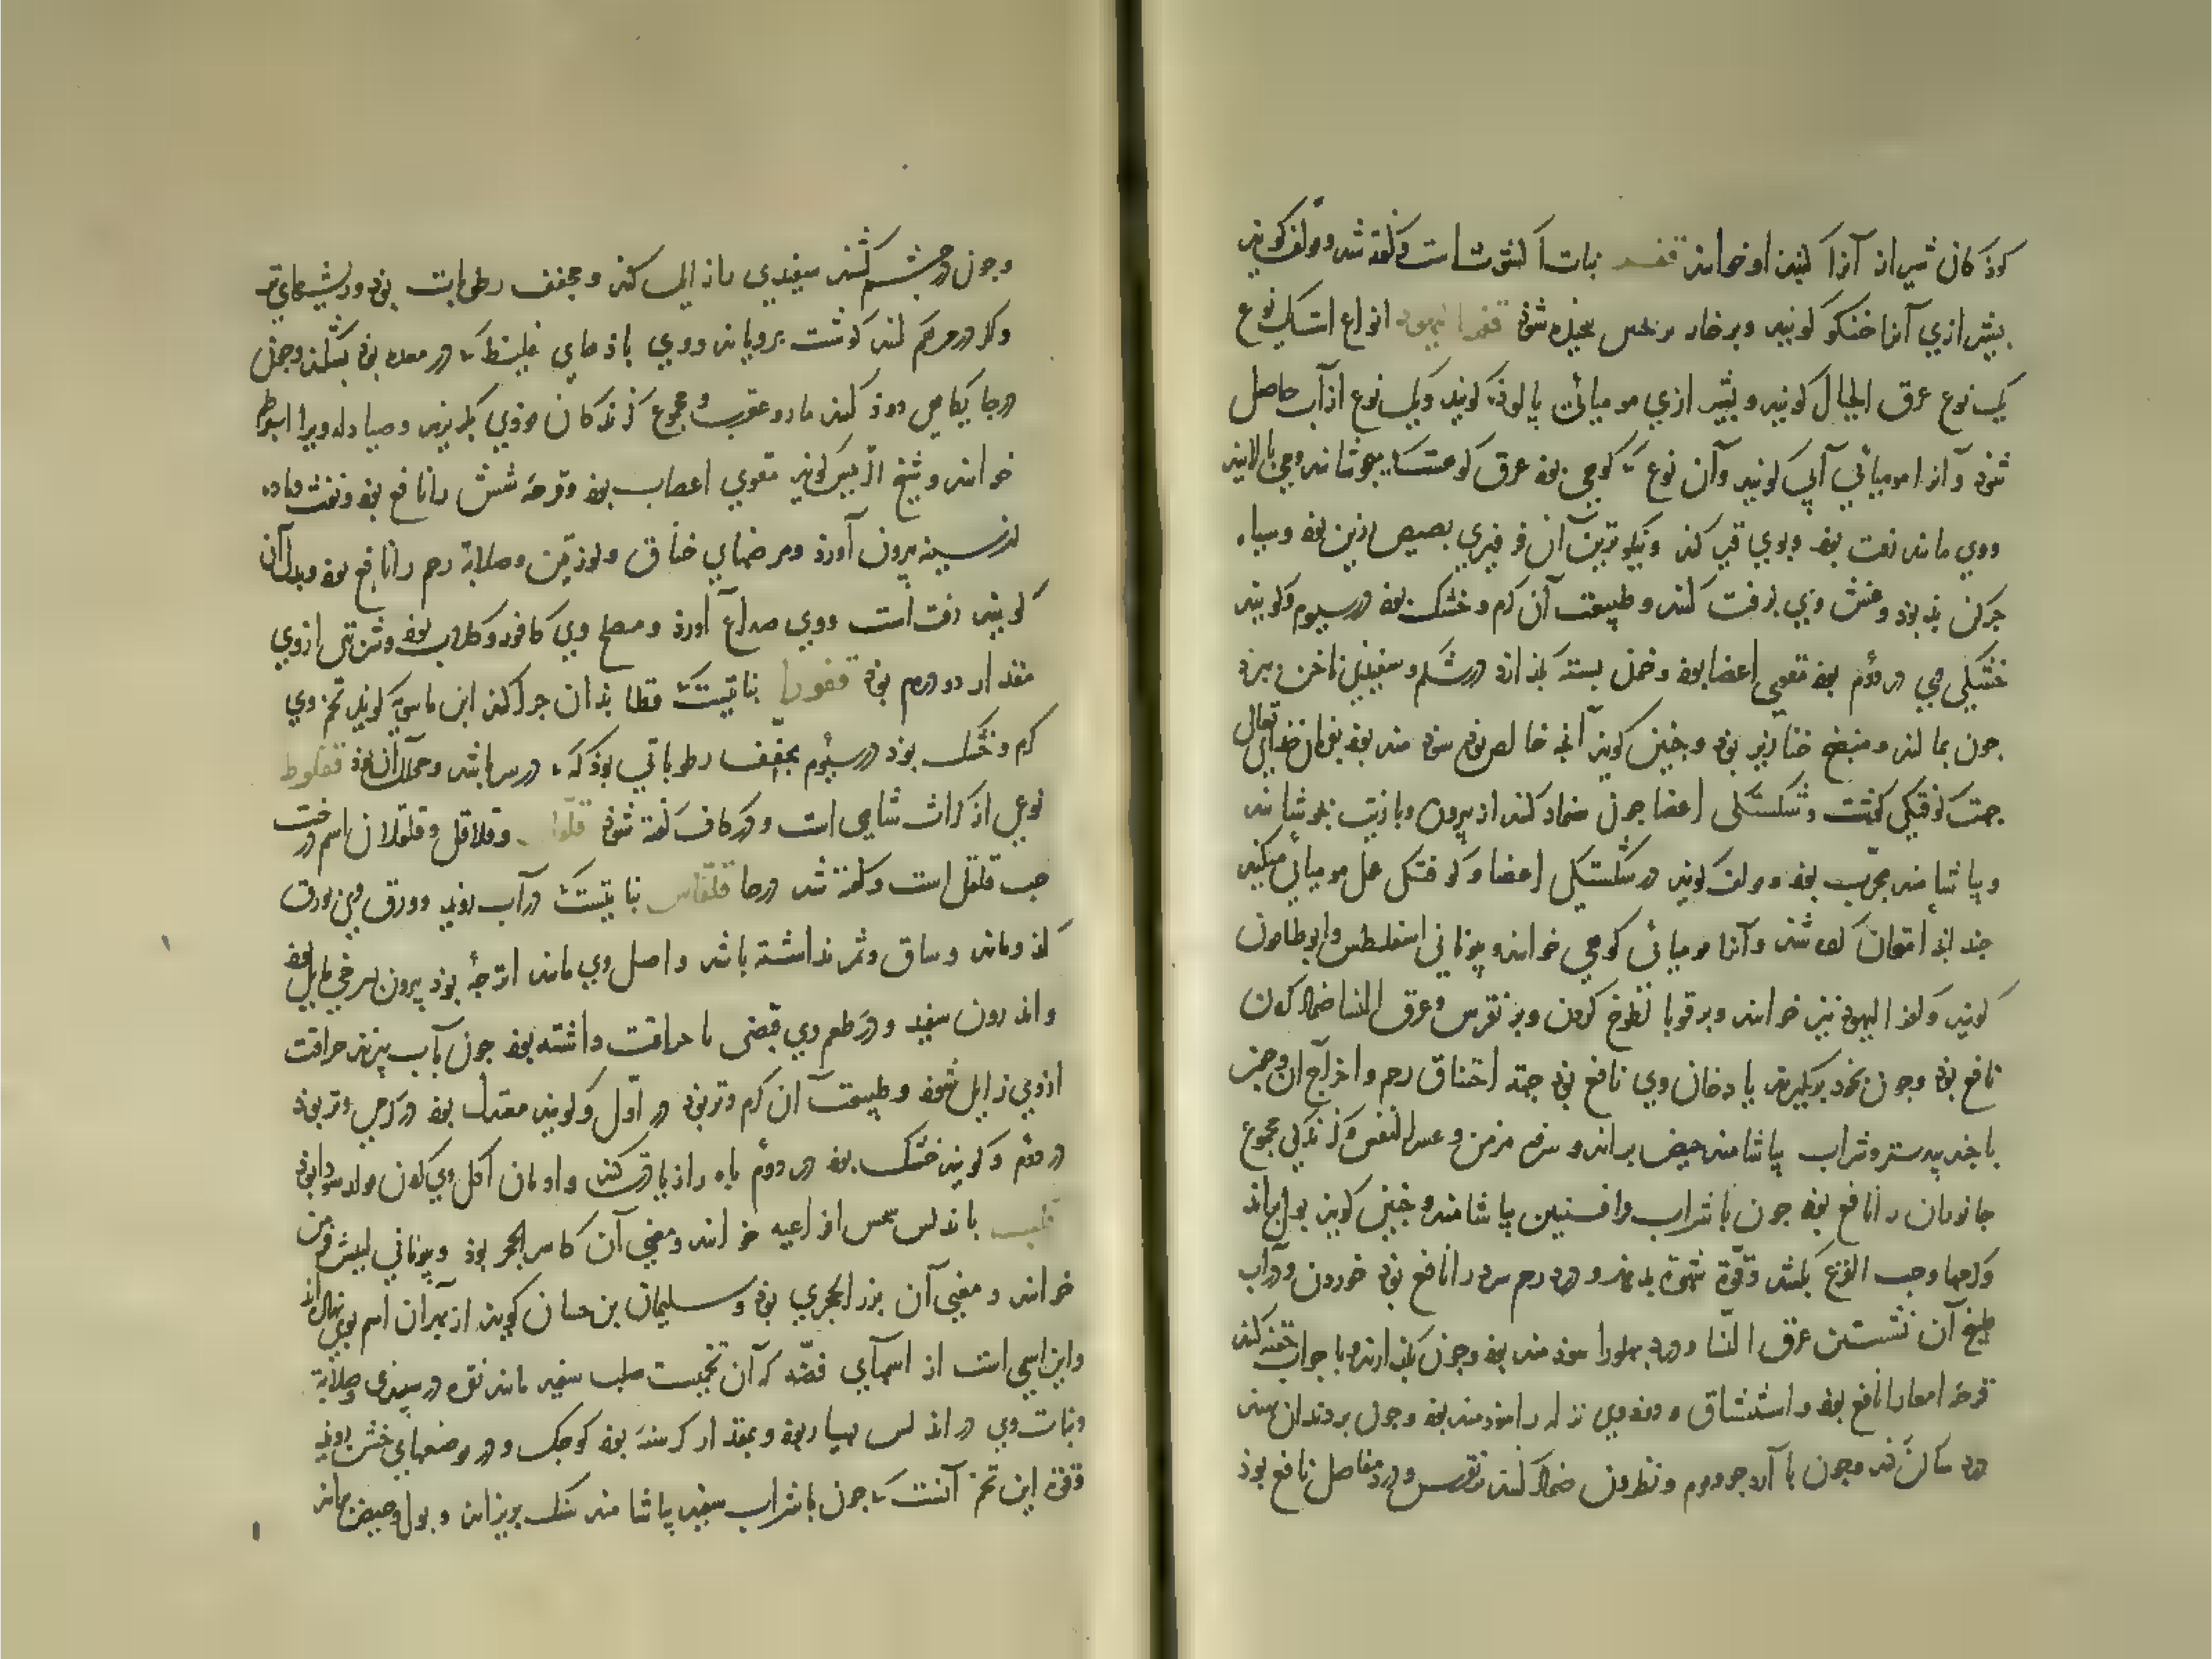 کوذکان شیراز آنرا کنین او خوانند قفد نبات اکشوث است و گفته شد و مولف گوید
بشیرازی آنرا خنکو گویند و بر خار نرنجبین بیچیده شوذ قفر الیهود انواع است یک نوع
یک نوع عرق الجبال گویند و بشیرازی مومیائی پالوذه گویند و یک نوع از آب حاصل
شوذ و آنرا مومیائی آبی گویند و آن نوع که کوهی بوذ عرق کوهست بجوشانند و می پالایند
و وی مانند زفت بوذ و بوی قیر کند و نیکوترین آن فرفیری بصیص رزین بوذ و سیاه
چرکن بد بوذ و غش وی بزفت کنند و طبیعت آن گرم و خشک بوذ در سیوم و گویند
خشکی وی در دوم بوذ مقوی اعضا بوذ و خون بسته بگذازد در شکم و سفیدی ناخن ببرد
چون بمالند و منضج خنازیر بوذ و چنین گویند آنچه خالص بوذ سوذمند بوذ بفرمان خدای تعالی
جهت کوفتگی گشت و شکستگی اعضا چون ضماد کنند از بیرون و با زیت بجوشانند
و بیاشامند مجرب بوذ و مولف گوید در شکستگی اعضا و کوفتگی عمل مومیائی میکند
چند بار امتحان کرده شد و آنرا مومیائی کوهی خوانند و بیونانی اسفلطس و ابوطامون
گویند و کفر الیهوذ نیز خوانند و بر قوبا لطوخ کردن و بر نقرس و عرق النسا ضماد کردن
نافع بوذ و چون بخود برگیرند یا دخان وی نافع بوذ جهة اختناق رحم و اخراج آن و چون
با جندبیدستر و شراب بیاشامند حیض براند و سرفه مزمن و عسر النفس و گزندگی مجموع
جانوران را نافع بوذ چون با شراب و افسنتین بیاشامند و چنین گویند بول براند
و کرمها و حب القرع بکشد و قوة شهوة بدهد و درد رحم سرد را نافع بوذ خوردن و در آب
طبیخ آن نشستن عرق النسا و درد پهلو را سوذمند بوذ و چون بگدازند و با جوآب حقنه کنند
قرحه امعا را نافع بوذ و استنشاق دوذ وی نزله را سوذمند بوذ و چون بر دندان نهند
درد ساکن کند و چون با آرد جو و موم و نطرون ضماد کنند نقرس و درد مفاصل نافع بوذ
و چون در چشم کشند سفیدی را زایل کند و مجفف رطوبات بوذ و ریشهای تر
و اگر در مرهم کنند گوشت برویاند و وی باذهای غلیظ که در معده بوذ بشکند و چون
در جایگاهی دوذ کنند مار و عقرب و مجموع گزندگان موذی بگریزند و صیادله ویرا ابوطم
خوانند و شیخ الرییس گوید مقوی اعصاب بوذ و قرحه شش را نافع بوذ و نفث ماده
از سینه بیرون آورذ و مرضهای خناق و لوزتین و صلابة رحم را نافع بوذ و بدل آن
گویند زفت است و وی صداع آورذ و مصلح وی کافور و گلاب بوذ و شربتی از وی
مقدار دو درم بوذ قفورا نباتیست که قطا بذان چرا کند ابن ماسه گوید تخم وی
گرم و خشک بوذ در سیوم مجفف رطوباتی بوذ که در سر باشد و محلل آن بوذ قفلوط
نوعی از کراث شامی است و در کاف گفته شوذ قلقل و قلاقل و قلقلان اسم درخت
حب قلقل است و گفته شد در حا قلقاس نباتیست که در آب روید و ورق وی بورق
کدو ماند و ساق و ثمر نداشته باشد و اصل وی مانند اترجه بوذ بیرون بسرخی مایل بوذ
و اندرون سفید و در طعم وی قبضی با حرافت داشته بوذ چون بآب بپزند حرافت
از وی زایل شوذ و طبیعت آن گرم و تر بوذ در اول و گویند معتدل بوذ در گرمی و تر بوذ
در دوم و گویند خشک بوذ در دوم باه را زیاذت کند و ادمان اکل وی کردن مولد سودا بوذ
قلب باندلس شمس از راعیه خوانند و معنی آن کاسر الحجر بوذ و بیونانی لیثسفرمن
خوانند و معنی آن بزر الحجری بوذ و سلیمان بن حسان گوید از بهر آن اسم بوی نهاده‌اند
و این اسمی است از اسمای فضه که آن تخمیست صلب سفید مانند نقره در سپیدی و صلابة
و نبات وی در اندلس بسیار بوذ و بمقدار کرسنه بوذ کوچک و در موضعهای خشن روید
قوة این تخم آنست که چون با شراب سفید بیاشامند سنگ بریزاند و بول و حیض براند